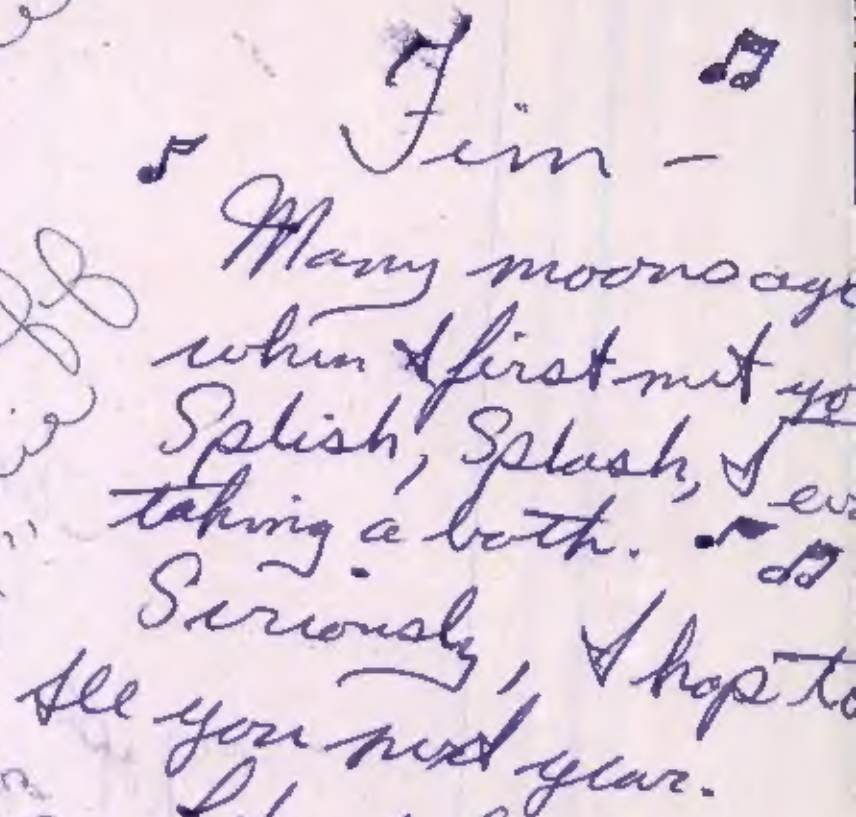 Tim -
Many moons ago
when I first met yo
Splish, Splash, I
taking a bath.
Seriously, I hope to
see you next year.